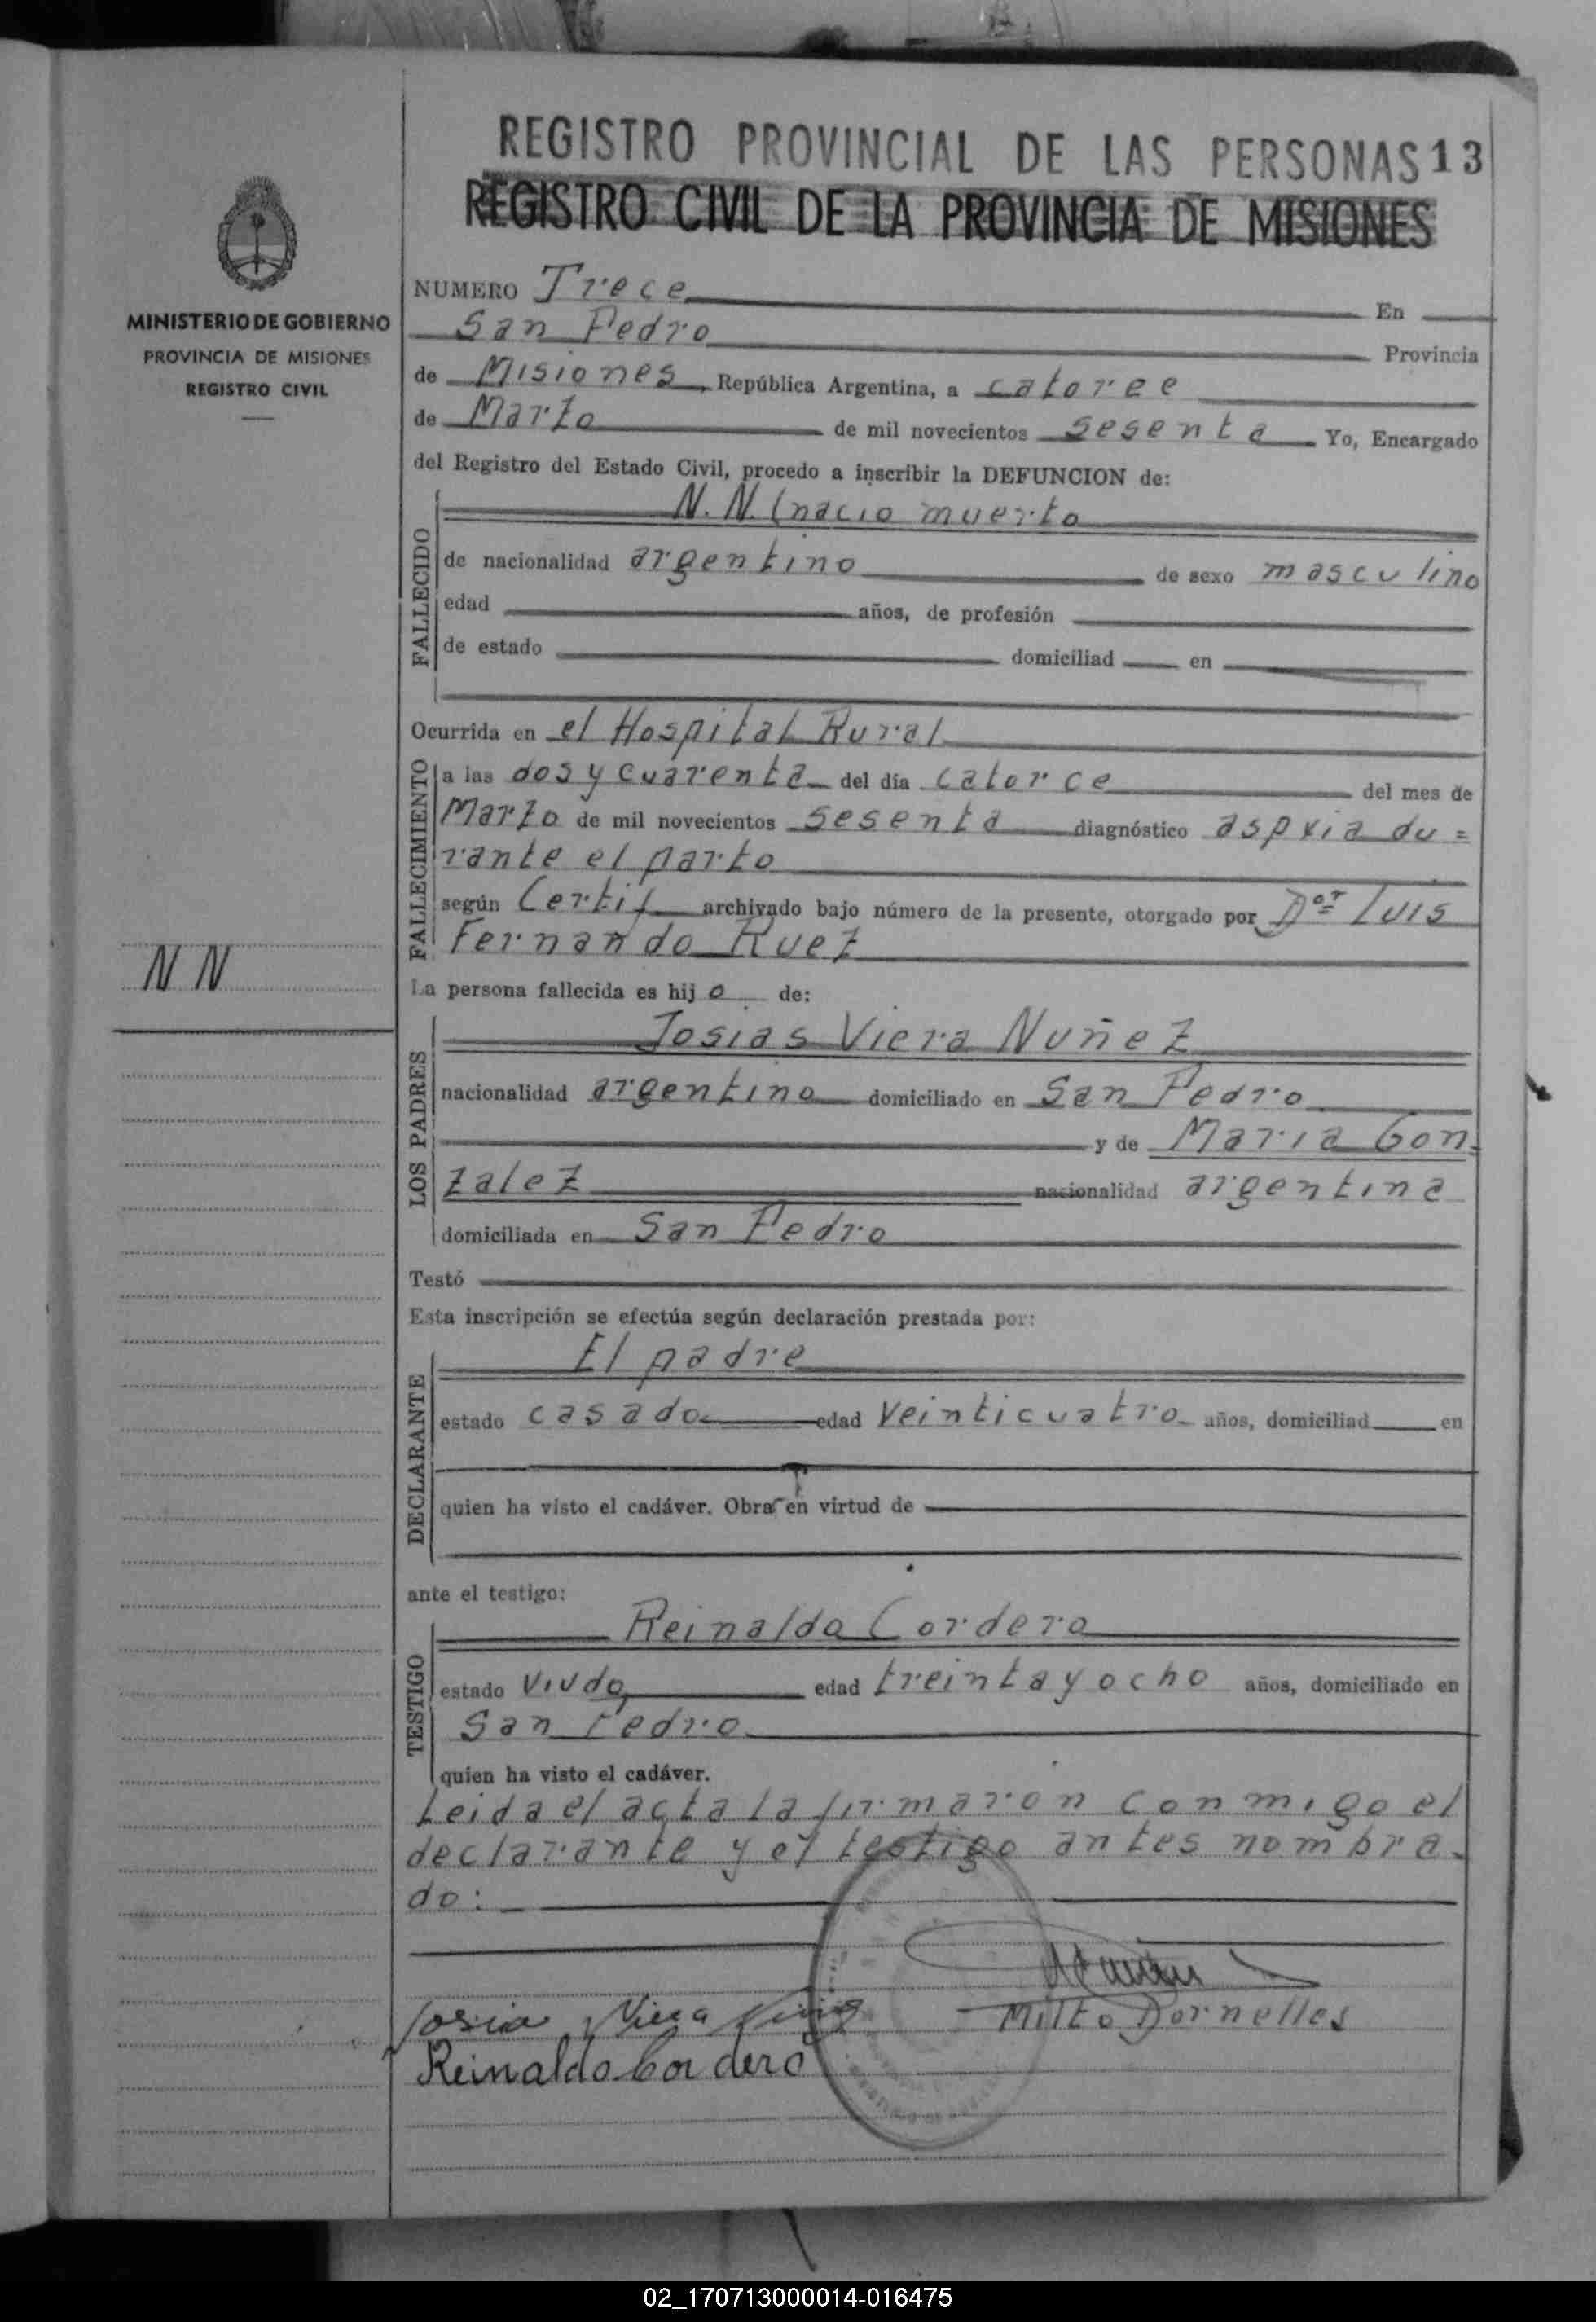 REGISTRO PROVINCIAL DE LAS PERSONAS 13
REGISTRO CIVIL DE LA PROVINCIA DE MISIONES
MINISTERIO DE GOBIERNO
PROVINCIA DE MISIONES
REGISTRO CIVIL
NUMERO Trece En
San Pedro Provincia
de Misiones, República Argentina, a catorce
de Marzo de mil novecientos sesenta Yo, Encargado
del Registro del Estado Civil, procedo a inscribir la DEFUNCION de:
FALLECIDO
N. N. (nacio muerto
de nacionalidad argentino de sexo masculino
edad años, de profesión
de estado domiciliad en
Ocurrida en el Hospital Rural
FALLECIMIENTO
a las dos y cuarenta del día catorce del mes de
Marzo de mil novecientos sesenta diagnóstico aspxia du=
rante el parto
según Certif archivado bajo número de la presente, otorgado por Dor Luis
Fernando Ruez
N N
La persona fallecida es hijo de:
LOS PADRES
Josias Viera Nuñez
nacionalidad argentino domiciliado en San Pedro
y de Maria Gon=
zalez nacionalidad argentina
domiciliada en San Pedro
Testó
Esta inscripción se efectúa según declaración prestada por:
DECLARANTE
El padre
estado casado edad veinticuatro años, domiciliad en
quien ha visto el cadáver. Obra en virtud de
ante el testigo:
TESTIGO
Reinaldo Cordero
estado viudo edad treinta y ocho años, domiciliado en
San Pedro
quien ha visto el cadáver.
Leida el acta la firmaron conmigo el
declarante y el testigo antes nombra-
do:
Josia Viera
Milto Dornelles
Reinaldo Cordero
02_170713000014-016475